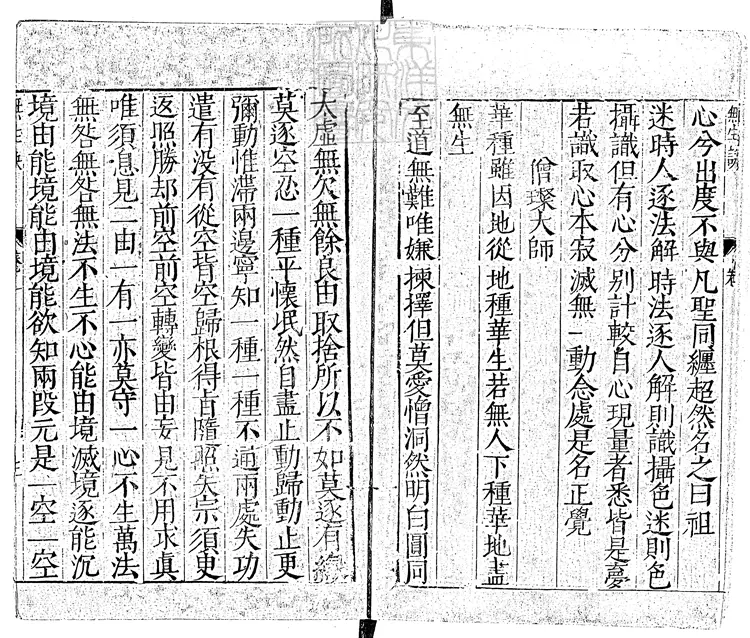 心今出度不與凡聖同纏超然名之曰祖
迷時人逐法解時法逐人解則識攝色迷則色
攝識但有心分別計較自心現量者悉皆是夢
若識取心本寂滅無一動念處是名正覺
僧璨大師
華種雖因地從地種華生若無人下種華地盡
無生
至道無難唯嫌揀擇但莫愛憎洞然明白圓同
大虛無欠無餘良由取捨所以不如莫逐有緣
莫逐空忍一種平懷泯然自盡止動歸動止更
彌動惟滯兩邊寧知一種一種不通兩處失功
遣有没有從空皆空歸根得旨隨照失宗須臾
返照勝却前空前空轉變皆由妄見不用求真
唯須息見二由一有一亦莫守一心不生萬法
無咎無咎無法不生不心能由境滅境逐能沉
境由能境能由境能欲知兩段元是一空一空